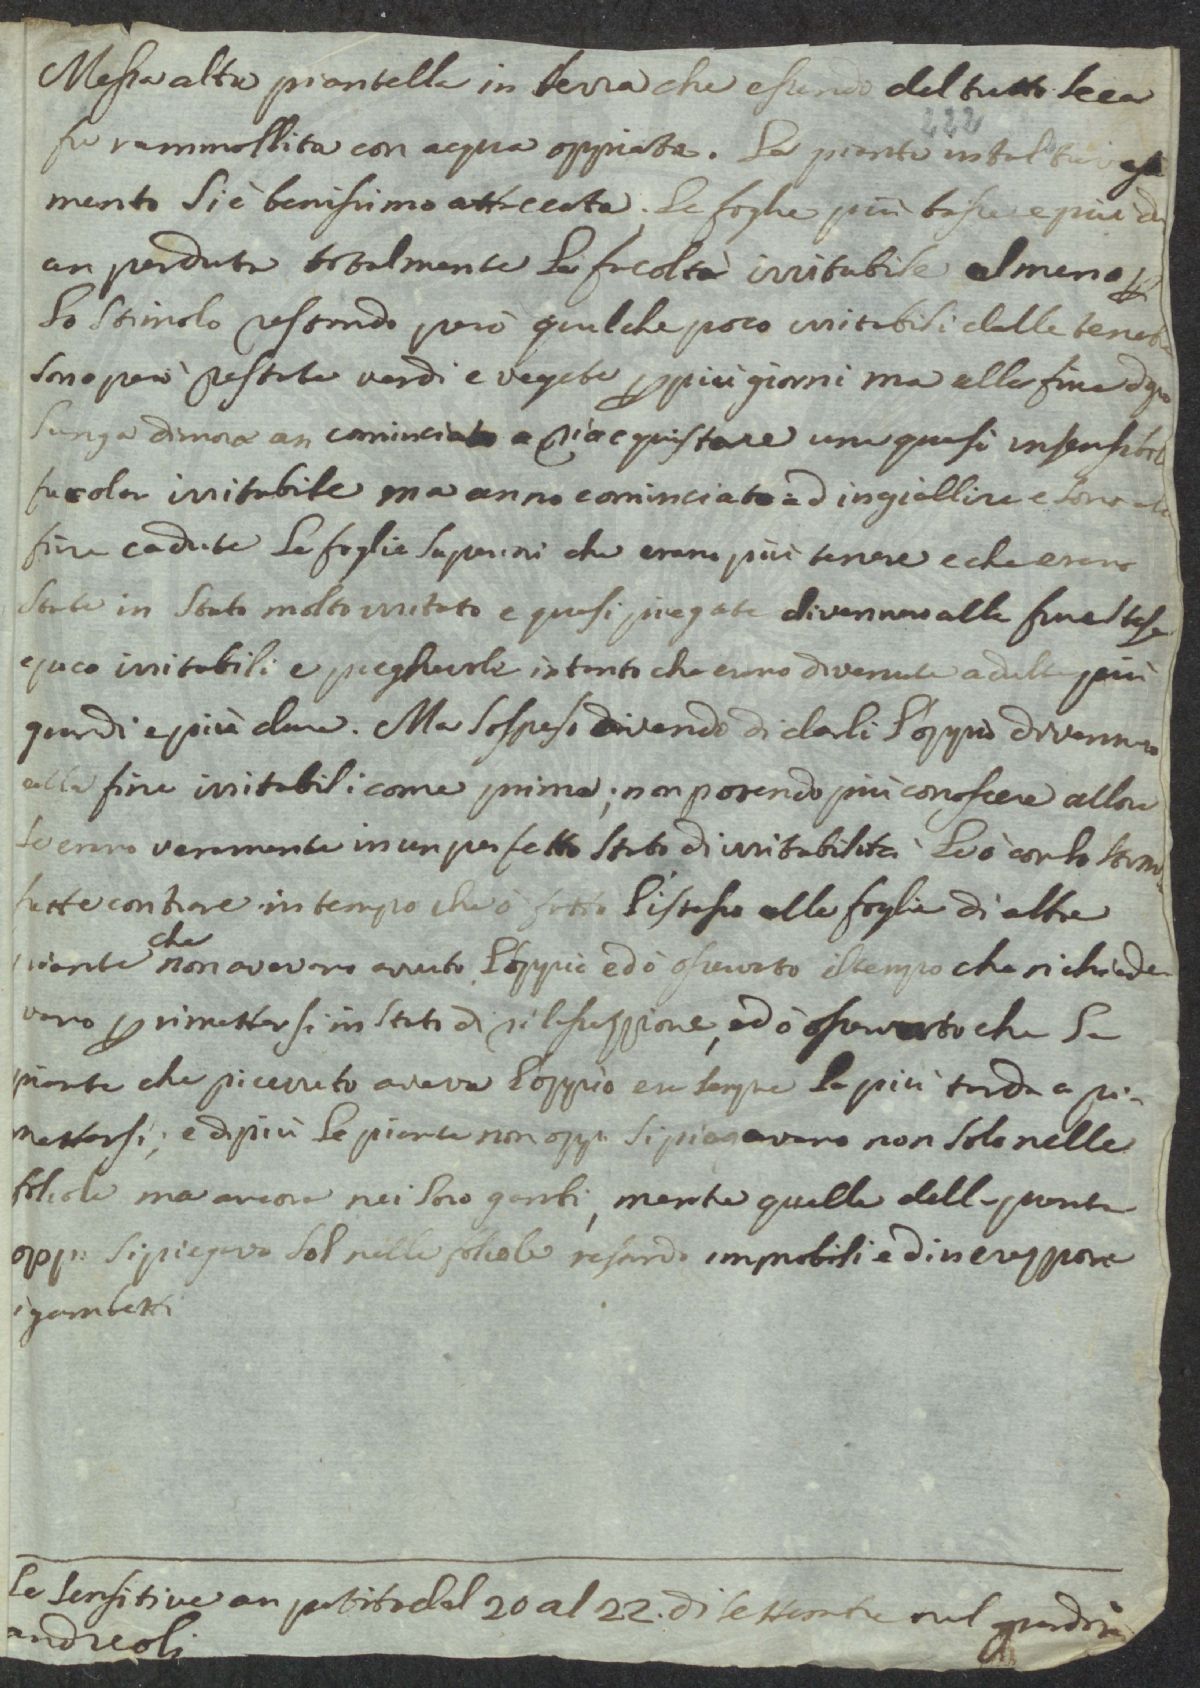 Messa altra piantella in terra che essendo del tutto secca
222
fu rammollita con acqua oppiata. La pianta in tal
mento si è benissimo attaccata. Le foglie più basse e più
an perduta totalmente la facoltà irritabile almeno p
lo stimolo restando però qualche poco irritabili dalle
sono però restate verdi e vegete p più giorni ma alla fine
lunga dimora an cominciato a riacquistare una quasi insensibil
facoltà irritabile ma anno cominciato ad ingiallire e sono
fine cadute Le foglie superiori che erano più tenere e che erano
state in stato molto irritato e quasi piegate divennero alla fine stese
e poco irritabili e pieghevoli intanto che erano divenute adulte più
grandi e più dure. Ma sospeso avendo di darli l'oppio divennero
alla fine irritabili come prima; non potendo più conoscere allora
se erano veramente in un perfetto stato di irritabilità le ò con lo
fatte contrare in tempo che ò fatto l'istesso alle foglie di altre
che
piante non avevano avuto l'oppio ed ò osservato il tempo che richiede
vano p rimettersi in stato di rilassazzione, ed ò osservato che la
pianta che ricevuto aveva l'oppio era sempre la più tarda a ri-
mettersi; e di più le piante non opp. si piegavano non solo nelle
foliole ma ancora nei loro gambi, mentre quelle della pianta
opp. si piegava sol nelle foliole restando immobili e
i gambetti
Le sensitive an patito dal 20 al 22. di settembre nel giardin
andreoli